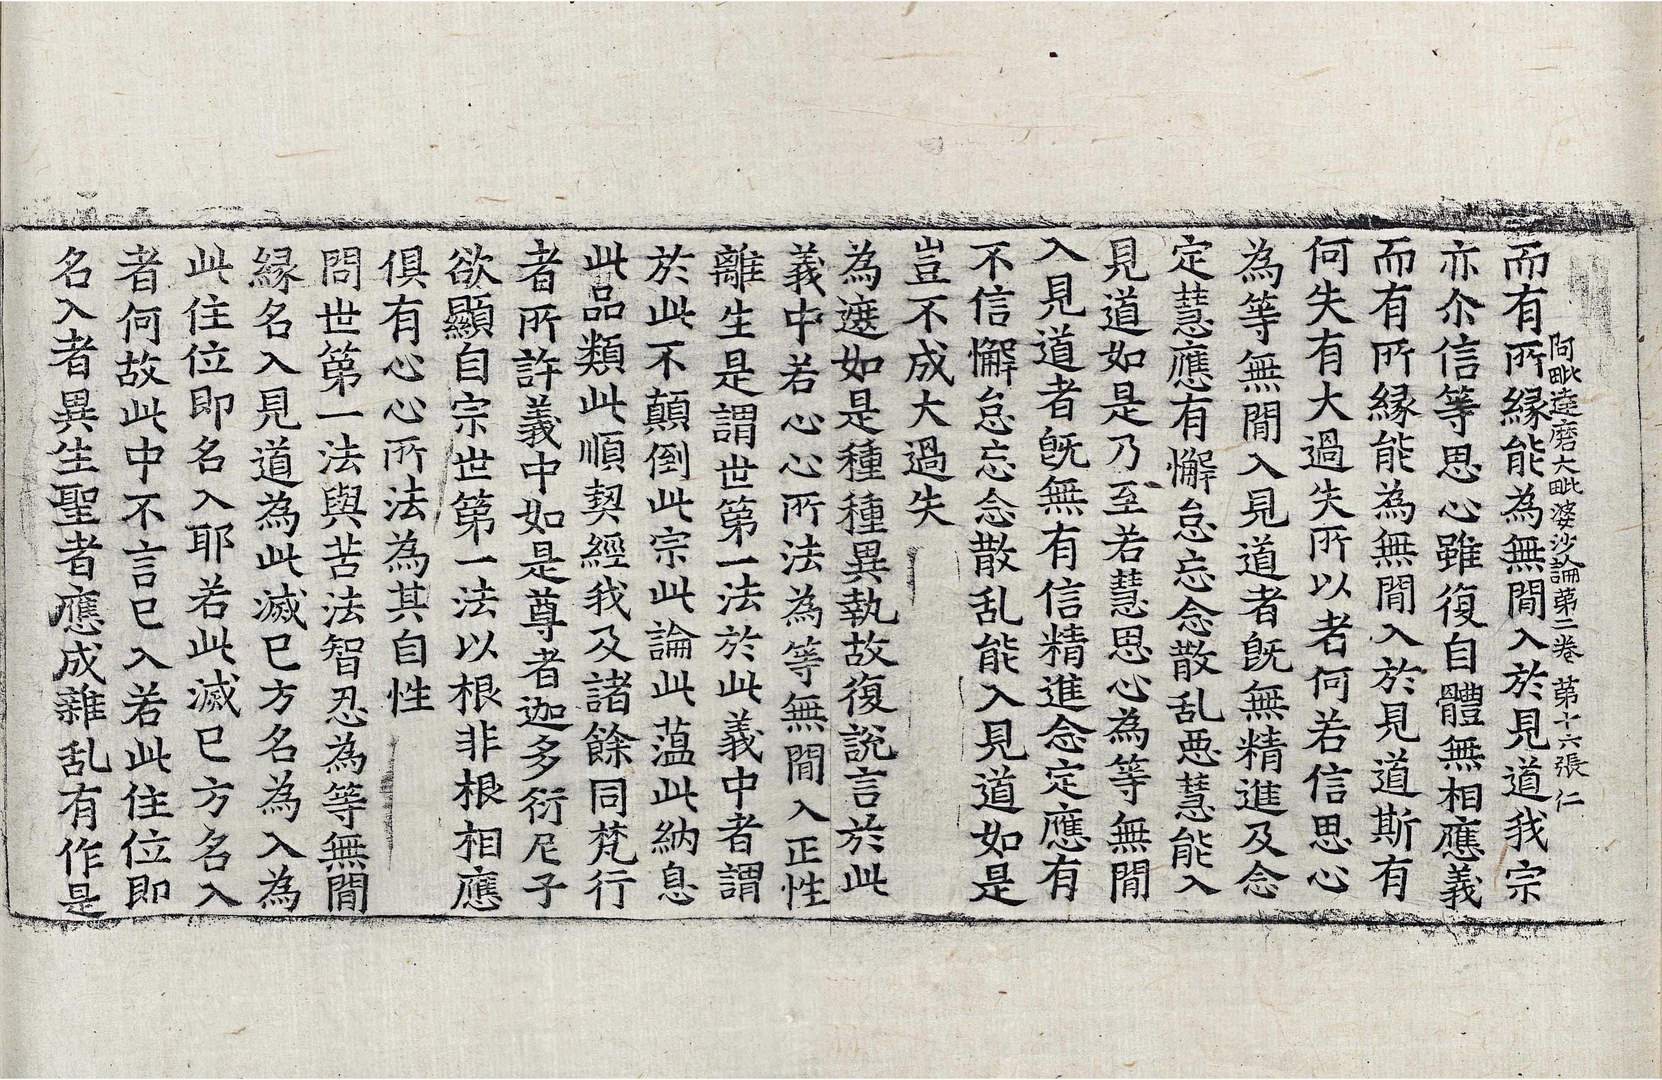 阿毗達磨大毗婆沙論第二卷　第十六張　仁
而有所縁能為無間入於見道我宗
亦尒信等思心雖復自體無相應義
而有所縁能為無間入於見道斯有
何失有大過失所以者何若信思心
為等無間入見道者旣無精進及念
定慧應有懈怠忘念散乱惡慧能入
見道如是乃至若慧思心為等無間
入見道者旣無有信精進念定應有
不信懈怠忘念散乱能入見道如是
豈不成大過失
為遮如是種種異執故復說言於此
義中若心心所法為等無間入正性
離生是謂世第一法於此義中者謂
於此不顛倒此宗此論此薀此納息
此品類此順契經我及諸餘同梵行
者所許義中如是尊者迦多衍尼子
欲顯自宗世第一法以根非根相應
俱有心心所法為其自性
問世第一法與苦法智忍為等無間
縁名入見道為此滅已方名為入為
此住位即名入耶若此滅已方名入
者何故此中不言已入若此住位即
名入者異生聖者應成雜乱有作是